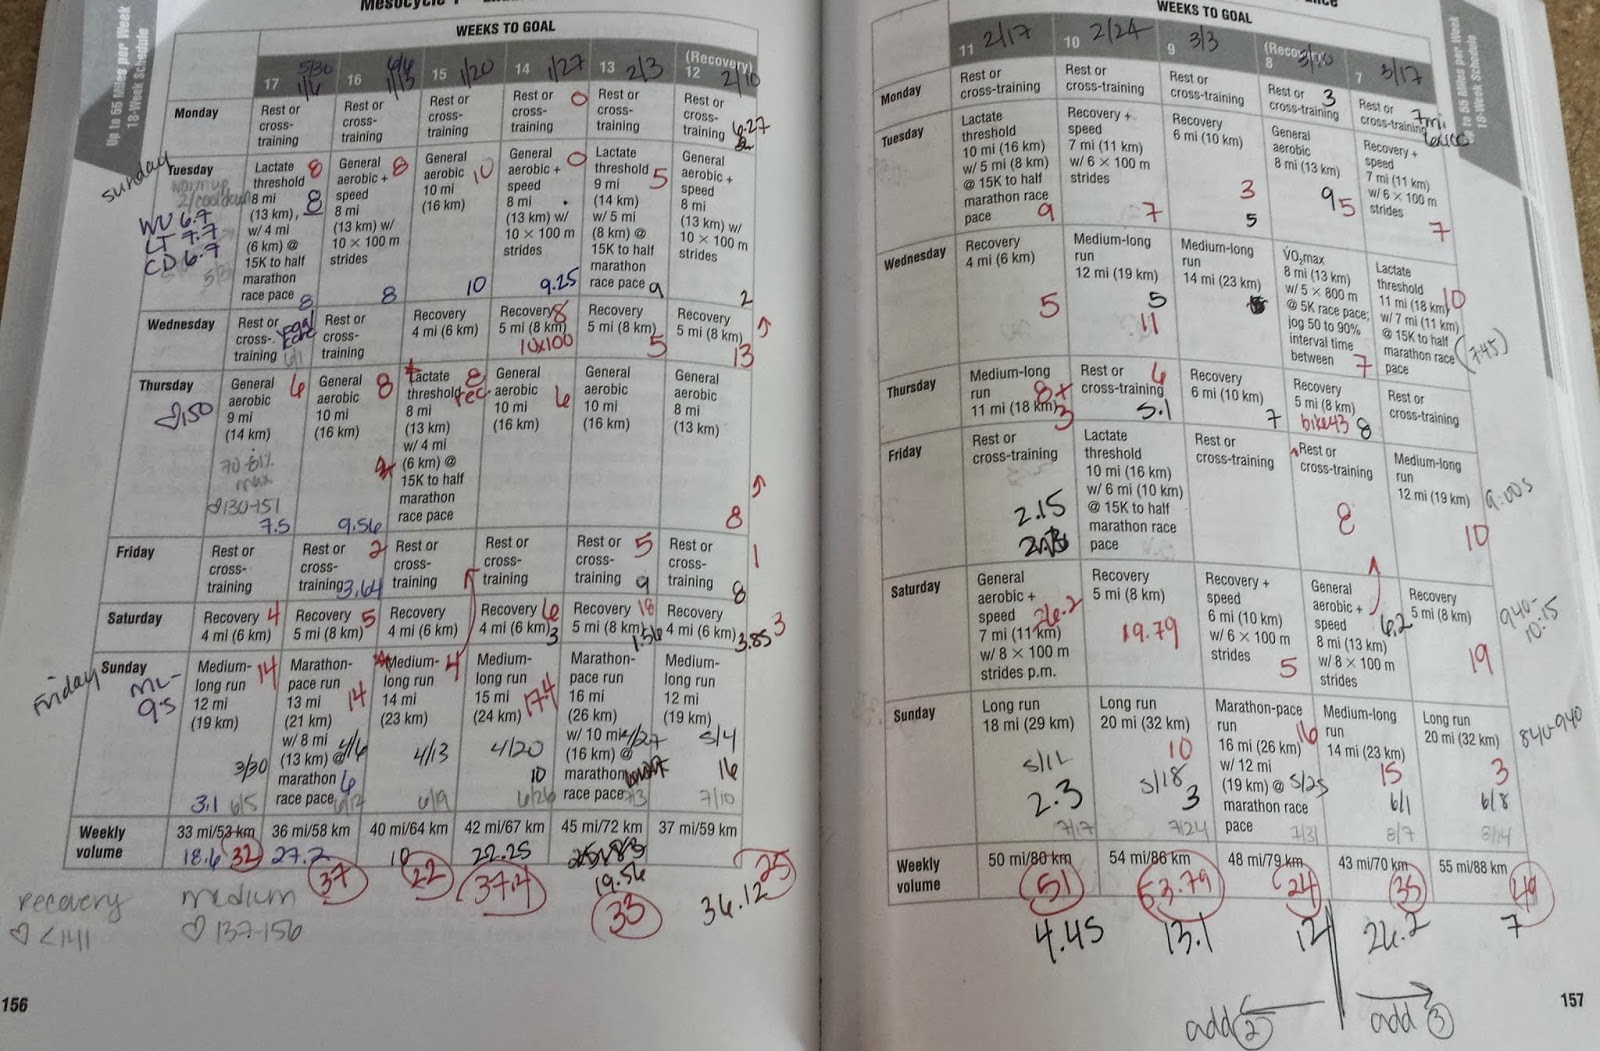 Up to 55 Miles per Week
18-Week Schedule
WEEKS TO GOAL
17
5/30
1/6
16
6/6
1/13
15
1/20
14
1/27
13
2/3
(Recovery)
12
2/10
Monday
Rest or
cross-
training
Rest or
cross-
training
Rest or
cross-
training
Rest or
cross-
training
0
Rest or
cross-
training
Rest or
cross-
training
6.27
Sunday
Tuesday
warm up
2/cooldown
WU 6.7
LT 7.7
CD 6.7
Lactate
threshold
8 mi
(13 km),
w/ 4 mi
(6 km) @
15K to half
marathon
race pace
8
8
8
General
aerobic +
speed
8 mi
(13 km) w/
10 × 100 m
strides
8
8
General
aerobic
10 mi
(16 km)
10
10
General
aerobic +
speed
8 mi
(13 km) w/
10 × 100 m
strides
0
9.25
Lactate
threshold
9 mi
(14 km)
w/ 5 mi
(8 km) @
15K to half
marathon
race pace
5
9
General
aerobic +
speed
8 mi
(13 km) w/
10 × 100 m
strides
2
Wednesday
Rest or
cross-
training
Rest or
cross-
training
Recovery
4 mi (6 km)
Recovery
5 mi (8 km)
8
10x100
Recovery
5 mi (8 km)
5
Recovery
5 mi (8 km)
13
Thursday
♡150
General
aerobic
9 mi
(14 km)
6
70-81%
max
♡130-151
7.5
General
aerobic
10 mi
(16 km)
8
9.56
Lactate
threshold
8 mi
(13 km)
w/ 4 mi
(6 km) @
15K to half
marathon
race pace
8
rec.
General
aerobic
10 mi
(16 km)
6
General
aerobic
10 mi
(16 km)
General
aerobic
8 mi
(13 km)
8
Friday
Rest or
cross-
training
Rest or
cross-
training
2
3.64
Rest or
cross-
training
Rest or
cross-
training
Rest or
cross-
training
5
9
Rest or
cross-
training
8
1
Saturday
Recovery
4 mi (6 km)
4
Recovery
5 mi (8 km)
5
Recovery
4 mi (6 km)
Recovery
4 mi (6 km)
6
3
Recovery
5 mi (8 km)
18
1.56
Recovery
4 mi (6 km)
3.85
3
Friday
Sunday
ML-
9.5
Medium-
long run
12 mi
(19 km)
14
3/30
3.1
6/5
Marathon-
pace run
13 mi
(21 km)
w/ 8 mi
(13 km) @
marathon
race pace
14
4/6
6
6/12
Medium-
long run
14 mi
(23 km)
4
4/13
6/19
Medium-
long run
15 mi
(24 km)
17.4
4/20
10
6/26
Marathon-
pace run
16 mi
(26 km)
w/ 10 mi
(16 km) @
marathon
race pace
4/27
7/3
Medium-
long run
12 mi
(19 km)
5/4
16
7/10
Weekly
volume
33 mi/53 km
18.6
32
36 mi/58 km
27.2
37
40 mi/64 km
10
22
42 mi/67 km
22.25
37.4
45 mi/72 km
19.56
33
37 mi/59 km
25
36.12
recovery
♡ <141
medium
♡ 137-156
156
WEEKS TO GOAL
11
2/17
10
2/24
9
3/3
(Recovery)
8
3/10
7
3/17
Up to 55 Miles per Week
18-Week Schedule
Monday
Rest or
cross-training
Rest or
cross-training
Rest or
cross-training
Rest or
cross-training
3
Rest or
cross-training
7mi
Tuesday
Lactate
threshold
10 mi (16 km)
w/ 5 mi (8 km)
@ 15K to half
marathon race
pace
9
Recovery +
speed
7 mi (11 km)
w/ 6 × 100 m
strides
7
Recovery
6 mi (10 km)
3
5
General
aerobic
8 mi (13 km)
9
5
Recovery +
speed
7 mi (11 km)
w/ 6 × 100 m
strides
7
Wednesday
Recovery
4 mi (6 km)
5
Medium-long
run
12 mi (19 km)
5
11
Medium-long
run
14 mi (23 km)
V̇O₂max
8 mi (13 km)
w/ 5 × 800 m
@ 5K race pace;
jog 50 to 90%
interval time
between
7
Lactate
threshold
11 mi (18 km)
w/ 7 mi (11 km)
@ 15K to half
marathon race
pace
10
(7:45)
Thursday
Medium-long
run
11 mi (18 km)
8+
3
Rest or
cross-training
6
5.1
Recovery
6 mi (10 km)
7
Recovery
5 mi (8 km)
bike43
8
Rest or
cross-training
Friday
Rest or
cross-training
2.15
Lactate
threshold
10 mi (16 km)
w/ 6 mi (10 km)
@ 15K to half
marathon race
pace
Rest or
cross-training
Rest or
cross-training
8
Medium-long
run
12 mi (19 km)
10
9:00s
Saturday
General
aerobic +
speed
7 mi (11 km)
w/ 8 × 100 m
strides p.m.
26.2
Recovery
5 mi (8 km)
19.79
Recovery +
speed
6 mi (10 km)
w/ 6 × 100 m
strides
5
General
aerobic +
speed
8 mi (13 km)
w/ 8 × 100 m
strides
6.2
Recovery
5 mi (8 km)
19
940-
10:15
Sunday
Long run
18 mi (29 km)
5/11
2.3
7/17
Long run
20 mi (32 km)
10
5/18
3
7/24
Marathon-pace
run
16 mi (26 km)
w/ 12 mi
(19 km) @
marathon race
pace
16
5/25
7/31
Medium-long
run
14 mi (23 km)
15
6/1
8/7
Long run
20 mi (32 km)
3
6/8
8/14
840-940
Weekly
volume
50 mi/80 km
51
4.45
54 mi/86 km
53.79
13.1
48 mi/79 km
24
12
43 mi/70 km
35
26.2
55 mi/88 km
49
7
add 2
add 3
157